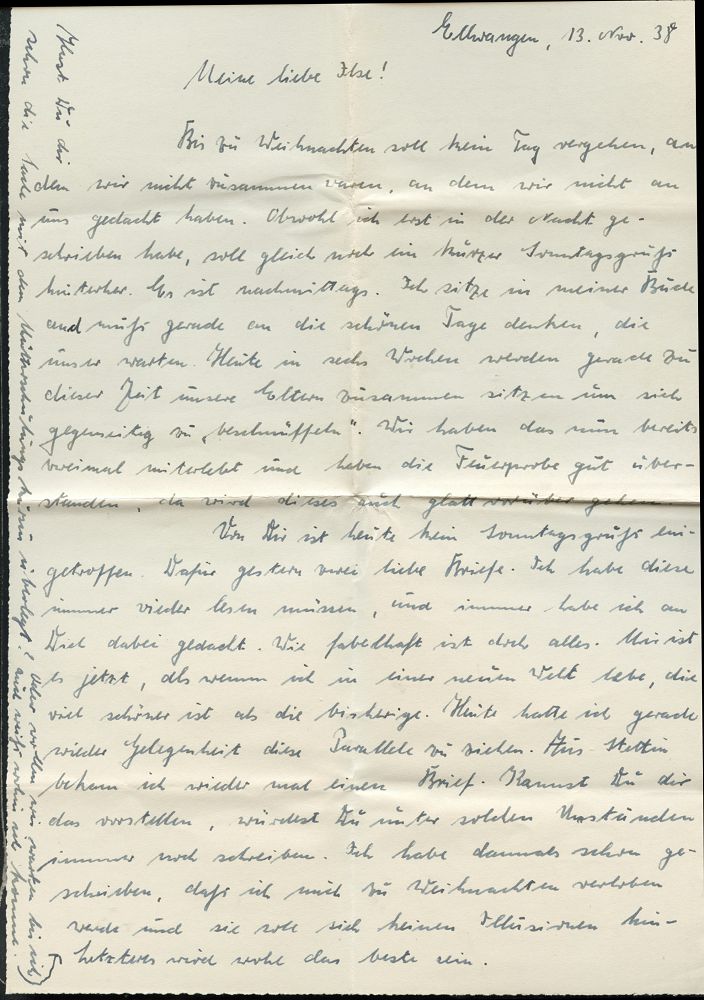 Ellwangen, 13. Nov. 38
Meine liebe Ilse!
Bis zu Weihnachten soll kein Tag vergehen, an
dem wir nicht zusammen waren, an dem wir nicht an
uns gedacht haben. Obwohl ich erst in der Nacht ge-
schrieben habe, soll gleich noch ein kurzer Sonntagsgruß
hinterher. Es ist nachmittags. Ich sitze in meiner Bude
und muß gerade an die schönen Tage denken, die
unser warten. Heute in sechs Wochen werden gerade zu
dieser Zeit unsere Eltern zusammen sitzen um sich
gegenseitig zu „beschnüffeln“. Wir haben das nun bereits
zweimal miterlebt und haben die Feuerprobe gut über-
standen, da wird dieses auch glatt vorüber gehen.
Von Dir ist heute kein Sonntagsgruß ein-
getroffen. Dafür gestern zwei liebe Briefe. Ich habe diese
immer wieder lesen müssen, und immer habe ich an
Dich dabei gedacht. Wie fabelhaft ist doch alles. Mir ist
es jetzt, als wenn ich in einer neuen Welt lebe, die
viel schöner ist als die bisherige. Heute hatte ich gerade
wieder Gelegenheit diese Parallele zu ziehen. Aus Stettin
bekam ich wieder mal einen Brief. Kannst Du dir
das vorstellen, würdest Du unter solchen Umständen
immer noch schreiben. Ich habe damals schon ge-
schrieben, daß ich mich zu Weihnachten verloben
werde und sie soll sich keinen Illusionen hin-
Letzteres wird wohl das beste sein.
(Hast Du dir
schon die Sache mit dem Mütterschulungskursus überlegt? Oder wollen wir warten bis ich
auch weiß wohin ich komme.)